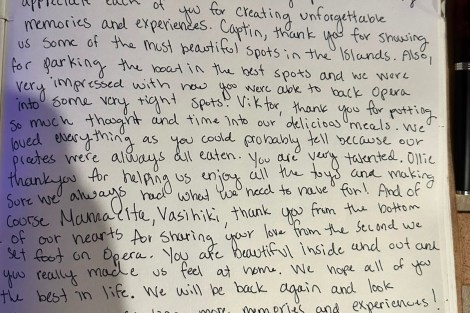 appreciate each of you for creating unforgettable
memories and experiences. Captin, thank you for showing
us some of the most beautiful spots in the Islands. Also,
for parking the boat in the best spots and we were
very impressed with how you were able to back Opera
into some very tight spots! Viktor, thank you for putting
so much thought and time into our delicious meals. We
loved everything as you could probably tell because our
plates were always all eaten. You are very talented. Ollie
thankyou for helping us enjoy all the toys and making
Sure we always had what we need to have fun! And of
course Mamacita, Vasihiki, thank you from the bottom
of our hearts for sharing your love from the second we
set foot on Opera. You are beautiful inside and out and
you really made us feel at home. We hope all of you
the best in life. We will be back again and look
more memories and experiences!